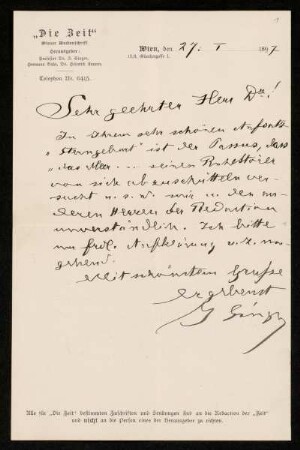 "Die Zeit"
Wiener Wochenschrift
Herausgeber:
Professor Dr. I. Singer,
Hermann Bahr, Dr. Heinrich Kanner.
Telephon Nr. 6415.
Wien, den 27. I 1897
IX/3, Günthergasse 1.
Sehr geehrter Herr Dr!
In Ihrem sehr schönen Aufsatz
ist der Passus, dass
"das Meer ... seinen
von sich abzuschütteln ver-
sucht u. s. w. mir u. den an-
deren Herren der Redaction
unverständlich. Ich bitte
um frdl. Aufklärung u. z. um-
gehend.
Mit schönstem Grusse
ergebenst
I Singer
Alle für "Die Zeit" bestimmten Zuschriften und Sendungen sind an die Redaction der "Zeit"
und nicht an die Person eines der Herausgeber zu richten.